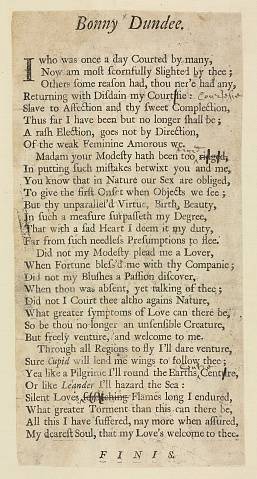 Bonny Dundee.
I who was once a day Courted by many,
Now am most scornfully Slighted by thee;
Others some reason had, thou ner'e had any,
Returning with Disdain my Courtsie: Courtesie
Slave to Affection and thy sweet Complection,
Thus far I have been but no longer shall be;
A rash Election, goes not by Direction,
Of the weak Feminine Amorous we.
Madam your Modesty hath been too
In putting such mistakes betwixt you and me,
You know that in Nature our Sex are obliged,
To give the first Onset when Objects we see;
But thy unparallel'd Virtue, Birth, Beauty,
In such a measure surpasseth my Degree,
That with a sad Heart I deem it my duty,
Far from such needless Presumptions to flee.
Did not my Modesty plead me a Lover,
When Fortune bless'd me with thy Companie;
Did not my Blushes a Passion discover,
When thou was absent, yet talking of thee;
Did not I Court thee altho agains Nature,
What greater symptoms of Love can there be,
So be thou no longer an unsensible Creature,
But freely venture, and welcome to me.
Through all Regions to fly I'll dare venture,
Sure Cupid will lend me wings to follow thee;
Yea like a Pilgrime I'll round the Earths Centure,
Or like Leander I'll hazard the Sea:
Silent Loves Flames long I endured,
What greater Torment than this can there be,
All this I have suffered, nay more when assured,
My dearest Soul, that my Love's welcome to thee.
FINIS.